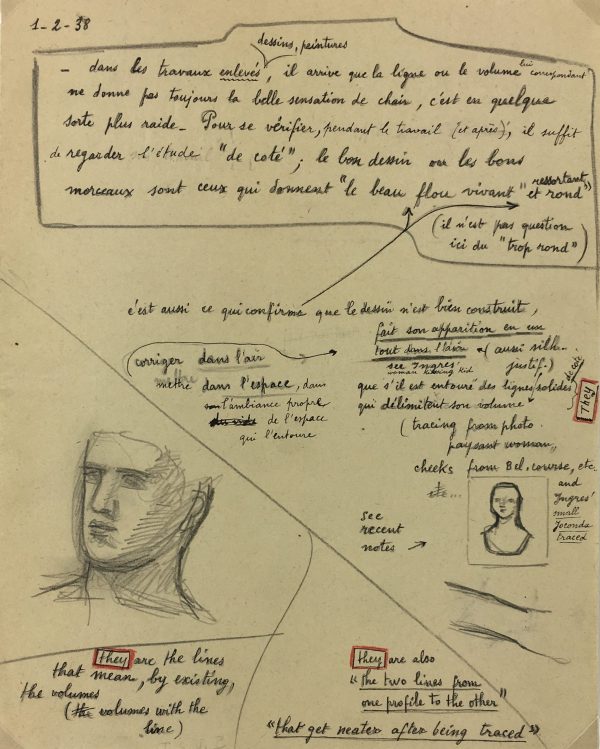 1-2-38
dessins, peintures
- dans les travaux enlevés, il arrive que la ligne ou le volume lui correspondant
ne donne pas toujours la belle sensation de chair, c'est en quelque
sorte plus raide - Pour se vérifier, pendant le travail (et après), il suffit
de regarder l'étude "de coté"; le bon dessin ou les bons
morceaux sont ceux qui donnent "le beau flou vivant ressortant
et rond"
(il n'est pas question
ici du "trop rond")
c'est aussi ce qui confirme que le dessin n'est bien construit,
fait son apparition en un
tout dans l'
(aussi silh.
justif.)
see Ingres'
woman kid
que s'il est entouré des lignes solides de coté
qui délimitent son volume
They
corriger dans l'air
mettre
mettre dans l'espace, dans
son l'ambiance propre
de l'espace
qui l'entoure
(tracing from photo
paysant woman,,
cheeks from Bel. course, etc.
etc...
and
Ingres'
small
Joconda
traced
see
recent
notes →
they are the lines
that mean, by existing,
the volumes
(the volumes with the
line)
they are also
"the two lines from
one profile to the other"
"that get neater after being traced"